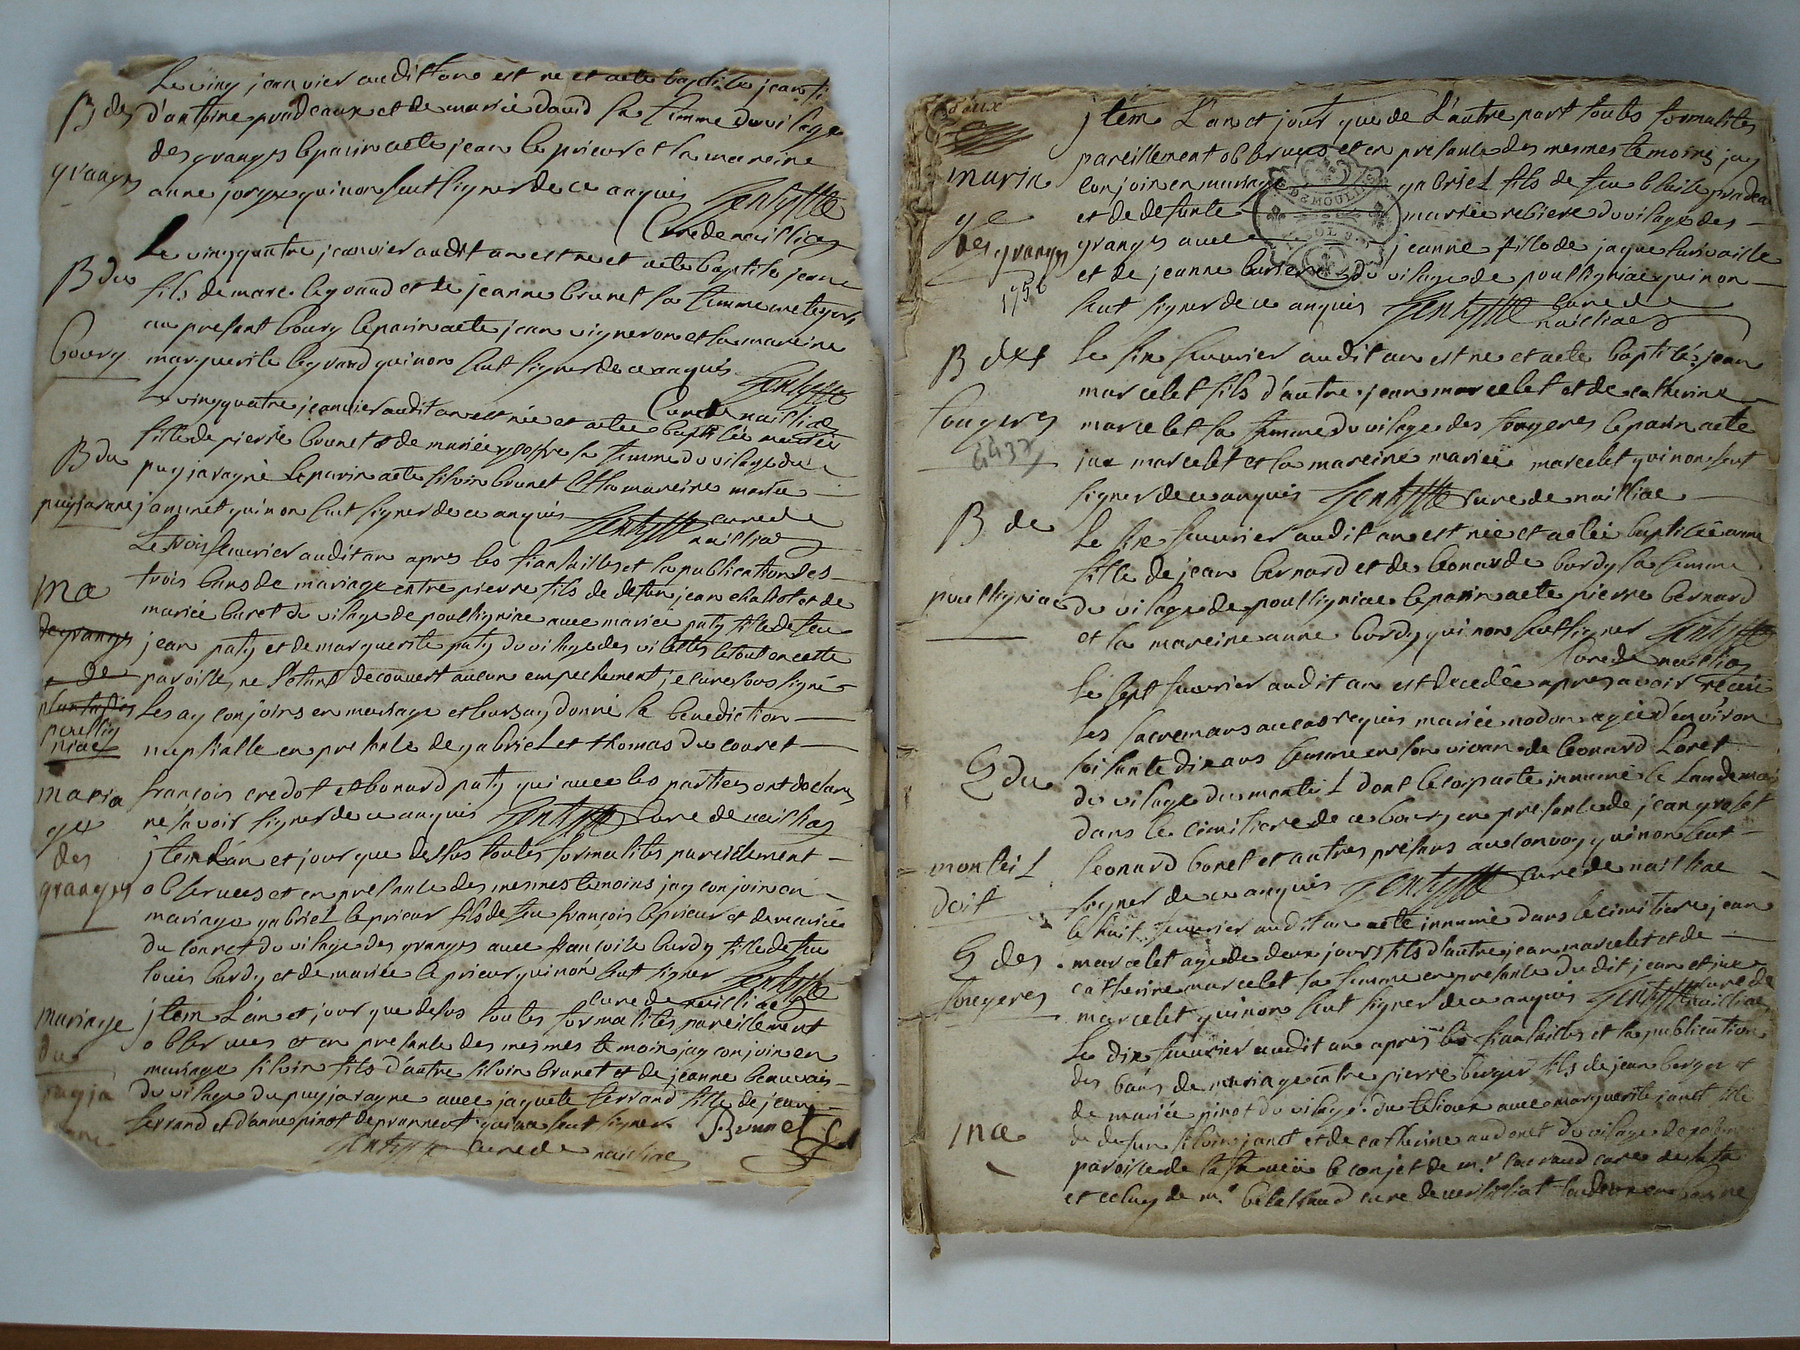 B des
granges
Le ving janvier audit an est ne et acte baptise jean fi
d'antoine pradeaux et de mariee david sa femme du vilage
des granges le parin acte jean le prieur et la mareine
anne jorge qui non seut signer de ce anquis
Cure de naillac
B du
bourg
Le vingquatre janvier audit an est ne et acte baptise jean
fils de marc legrand et de jeanne brunet sa femme
au present bourg le parin acte jean vigneron et la mareine
marguerite legrand qui non seut signer de ce anquis
Cure de naillac
B du
puyjarane
Le vingquatre janvier audit an est née et actee baptisée mariée
fille de pierre brunet et de mariée sa femme du vilage du
puyjaragne le parin acte silvin brunet et la mareine mariee
jaminet qui non seut signer de ce anquis cure de
naillac
ma
des granges
de
poulligniac
Le trois feuvrier audit an apres les fiansailles et la publication des
trois bans de mariage entre pierre fils de defun jean chabot et de
mariée baret du vilage de poulligniac avec mariee paty fille de feu
jean paty et de marguerite paty du vilage des vilettes le tout en cette
paroisse, ne s'etant decouvert aucun empechement je cure sous signé
les ay conjoins en mariage et leurs ay donné la benediction
nuptialle en presence de gabriel et thomas du couret
francois credot et leonard paty qui avec les parties ont declares
ne savoir signer de ce anquis cure de naillac
maria
ge
des
granges
jtem l'an et jour que dessus toutes formalites pareillement
observees et en presance des mesmes temoins jay conjoin en
mariage gabriel le prieur fils de feu françois le prieur et de mariée
du couret du vilage des granges avec francoise bardy fille de feu
louis bardy et de mariée le prieur qui non seut signer
cure de naillac
mariage
du
puyja
rane
jtem l'an et jour que desus toutes formalites pareillement
observees et en presance des mesmes temoin jay conjoin en
mariage silvin fils d'autre silvin brunet et de jeanne beauvais
du vilage du puyjaragne avec jaquete ferrand fille de jean
ferrand et d'anne pinot de prannent qui na seut signer Brunet
cure de naillac
maria
ge
des granges
1756
jtem L'an et jour que de l'autre part toutes formalites
pareillement observees et en presante des mesmes temoins jay
conjoin en mariage gabriel fils de feu blaise pradeau
et de defunte mariée rebiere du vilage des
granges avec jeanne fille de jaque
et de jeanne du vilage de poulligniac qui non
seut signer de ce anquis cure de
naillac
B des
fougeres
4437
Le six feuvrier audit an est ne et acte baptisé jean
marcelet fils d'autre jean marcelet et de catherine
marcelet sa femme du vilage des fougeres le parin acte
jac marcelet et la mareine mariee marcelet qui non seut
signer de ce anquis cure de naillac
B de
poulligniac
Le six feuvrier audit an est née et actée baptisée anne
fille de jean bernard et de leonarde bardy sa femme
du vilage de poulligniac le parin acte pierre bernard
et la mareine anne bardy qui non seut signer
Cure de naillac
E du
monteil
doit
Le sept feuvrier audit an est decedée apres avoir receu
les sacremans au cas requis mariée nodon agée d'environ
soisante dix ans femme en son vivan de leonard Loret
du vilage du monteil dont le corps acte innumé le landemain
dans le cimitiere de ce bourg en presante de jean groset
leonard boret et autres presans au convoy qui non seut
signer de ce anquis cure de naillac
E des
fougeres
le huit feuvrier audit an acte innumé dans le cimitiere jean
marcelet age de deux jours fils d'autre jean marcelet et de
catherine marcelet sa femme en presante du dit jean et jac
marcelet qui non seut signer de ce anquis cure de
naillac
ma
Le dix feuvrier audit an apres les fiansailles et la publication
des bans de mariage entre pierre berger fils de jean berger et
de mariée pinot du vilage du avec marguerite janet fille
de defun silvin janet et de catherine audonet du vilage de
paroisse de le conjet de mr. cure de
et celuy de mr. cure de